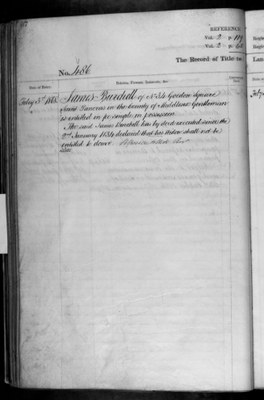 REFERENCE
Vol. 2 p 119
Vol. 2 p
The Record of Title to
No. 486
Date of Entry.
Estates, Powers, Interests, &c.
1865 James Burchell of No 54 Gordon Square
Saint Pancras in the County of Middlesex Gentleman
is entitled in fee simple in possession
The said James Burchell has by deed executed since the
2nd January 1834 declared that his widow shall not be
entitled to dower